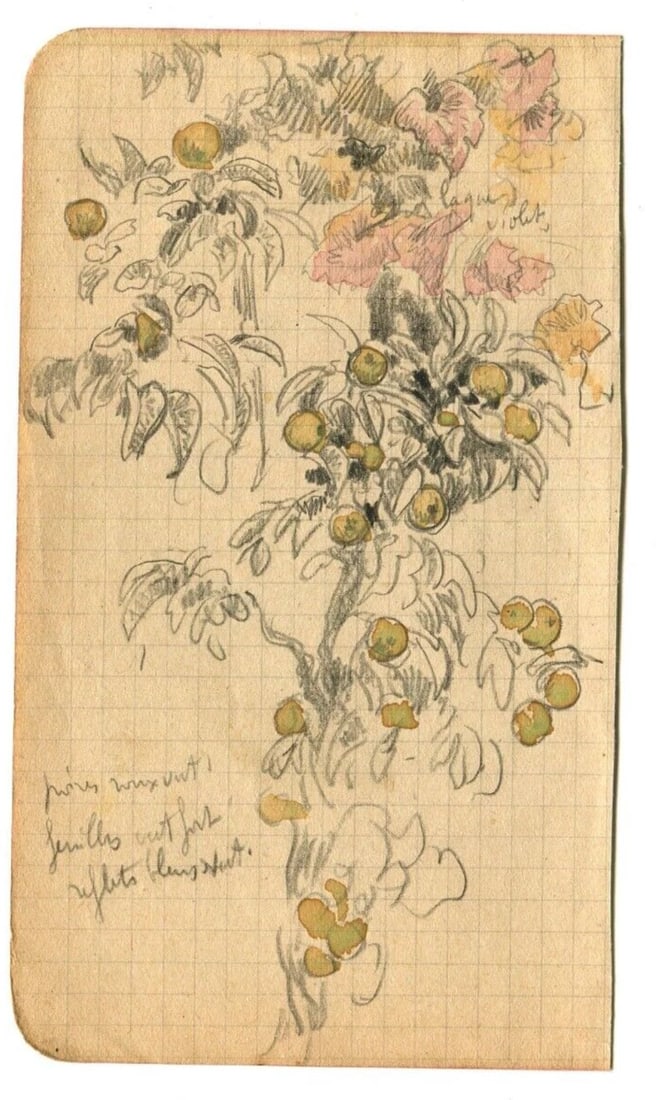 laque
violet
poires roux vert
feuilles vert fort
reflets bleus vert.